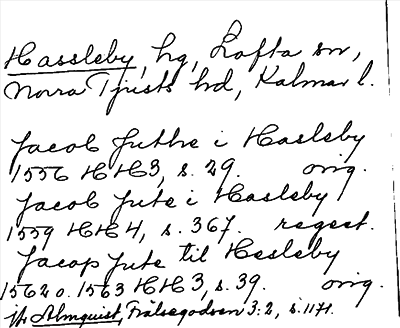 Hassleby, hg, Lofta sn,
Norra Tjusts hd, Kalmar l.
Jacob Juthe i Hasleby
1556 HH3, s. 29. orig.
Jacob Jute i Hasleby
1559 HH4, s. 367. regest.
Jacop Jute til Hesleby
1562 o. 1563 HH3, s. 39. orig.
Jfr Almquist, Frälsegodsen 3:2, s. 1171.